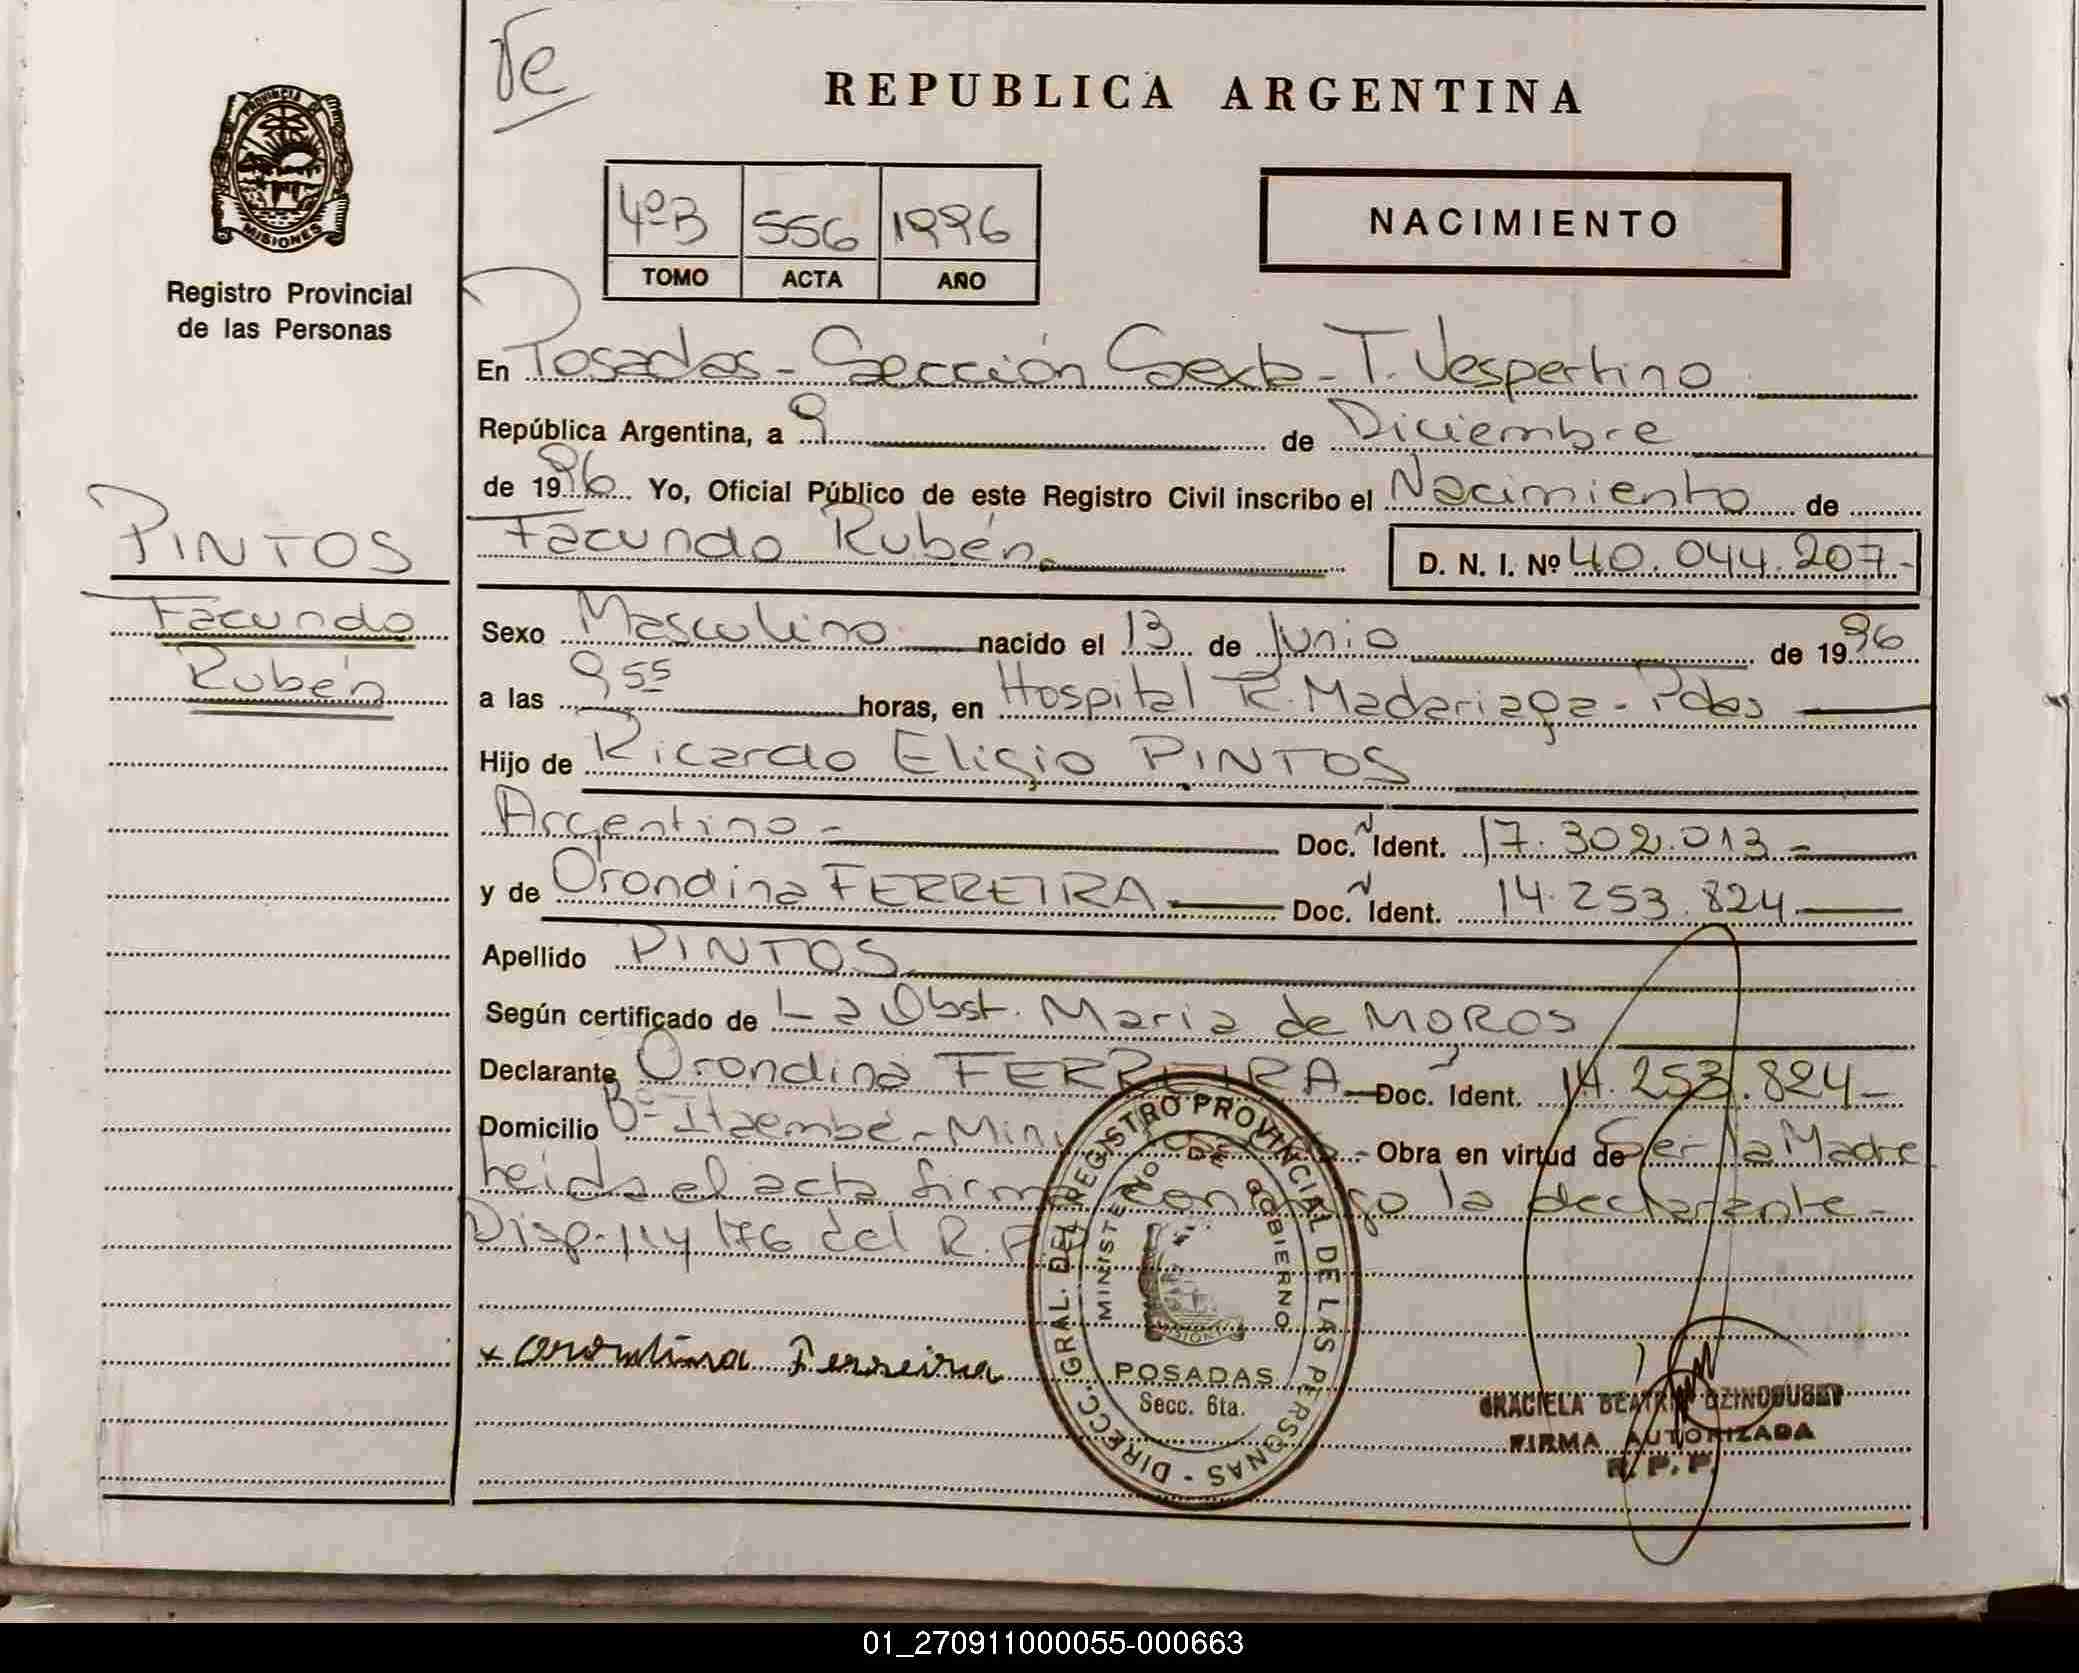 Te
REPUBLICA ARGENTINA
PROVINCIA DE
MISIONES
Registro Provincial
de las Personas
4ºB 556 1996
TOMO ACTA AÑO
NACIMIENTO
En Posadas - Sección Sexta - T. Vespertino
República Argentina, a 9 de Diciembre
de 1996 Yo, Oficial Público de este Registro Civil inscribo el Nacimiento de
Facundo Rubén D. N. I. Nº 40.044.207-
PINTOS
Facundo
Rubén
Sexo Masculino nacido el 13 de Junio de 1996
a las 9 55 horas, en Hospital R. Madariaga - Pdas
Hijo de Ricardo Eligio PINTOS
Argentino - Doc. Ident. 17.302.013 -
y de Orondina FERREIRA Doc. Ident. 14.253.824
Apellido PINTOS
Según certificado de La Obst. Maria de MOROS
Declarante Orondina FERREIRA - Doc. Ident. 14.253.824 -
Domicilio Bº Itaembé - Mini - Obra en virtud de Ser la Madre
Leida el acta firma conmigo la declarante -
Disp. 114/76 del R.P.P
x Orondina Ferreira
DIRECC. GRAL. DEL REGISTRO PROVINCIAL DE LAS PERSONAS -
MINISTERIO DE GOBIERNO
POSADAS
Secc. 6ta.
GRACIELA BEATRIZ
FIRMA AUTORIZADA
R. P. P.
01_270911000055-000663